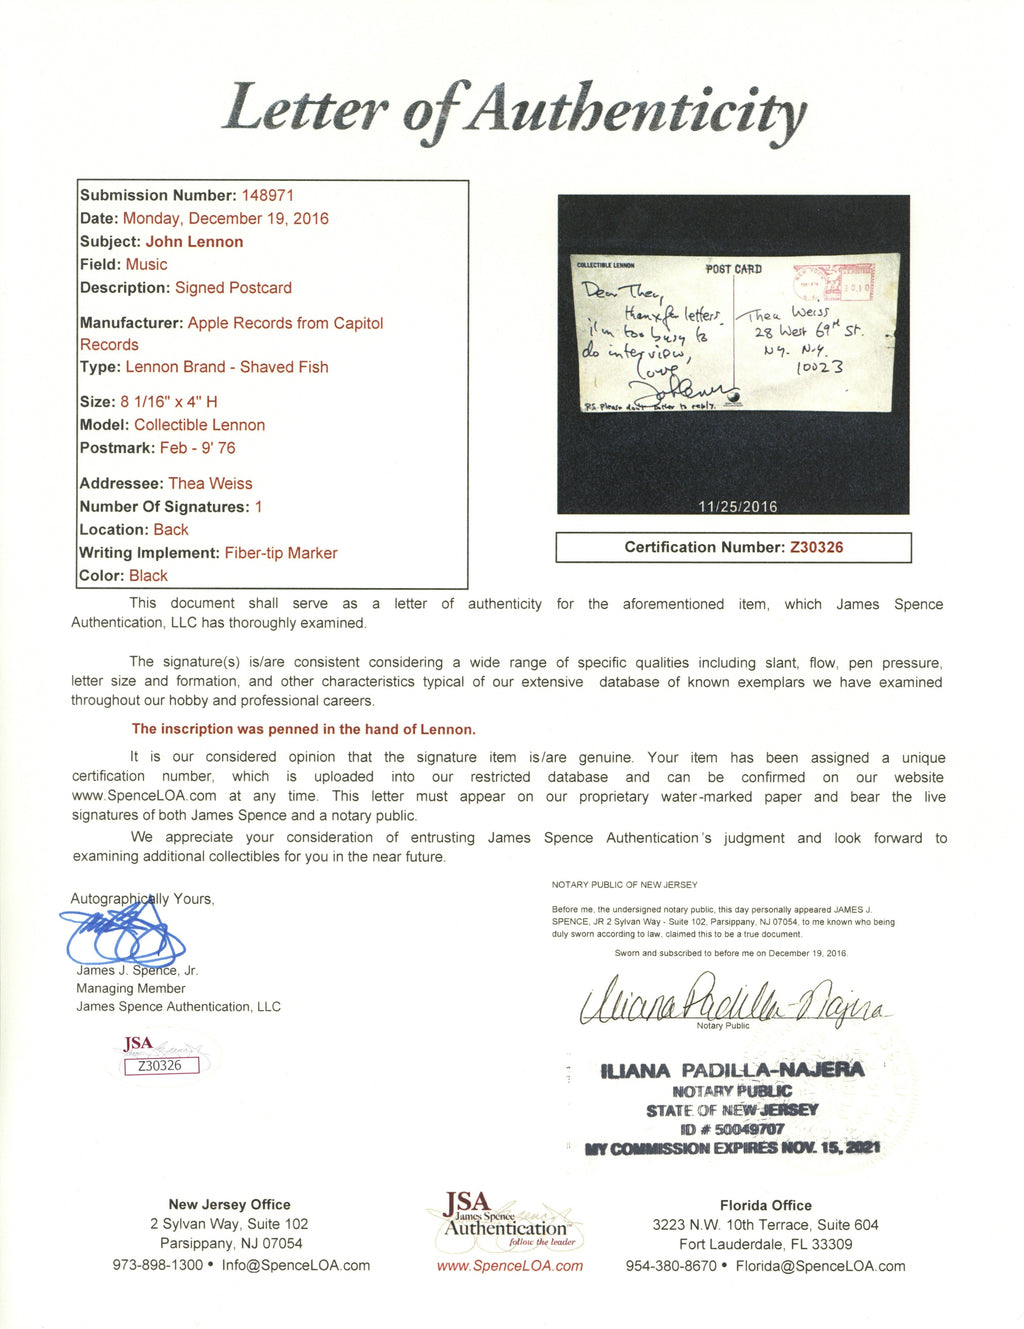 Letter of Authenticity
Submission Number: 148971
Date: Monday, December 19, 2016
Subject: John Lennon
Field: Music
Description: Signed Postcard
Manufacturer: Apple Records from Capitol
Records
Type: Lennon Brand - Shaved Fish
Size: 8 1/16" x 4" H
Model: Collectible Lennon
Postmark: Feb - 9' 76
Addressee: Thea Weiss
Number Of Signatures: 1
Location: Back
Writing Implement: Fiber-tip Marker
Color: Black
COLLECTIBLE LENNON
POST CARD
Dear Thea,
thanx for letters
i'm too busy to
do interview,
love
John Lennon
P.S. Please don't bother to reply.
Thea Weiss
28 West 69th St.
N.Y. N.Y.
10023
11/25/2016
Certification Number: Z30326
This document shall serve as a letter of authenticity for the aforementioned item, which James Spence
Authentication, LLC has thoroughly examined.
The signature(s) is/are consistent considering a wide range of specific qualities including slant, flow, pen pressure,
letter size and formation, and other characteristics typical of our extensive database of known exemplars we have examined
throughout our hobby and professional careers.
The inscription was penned in the hand of Lennon.
It is our considered opinion that the signature item is/are genuine. Your item has been assigned a unique
certification number, which is uploaded into our restricted database and can be confirmed on our website
www.SpenceLOA.com at any time. This letter must appear on our proprietary water-marked paper and bear the live
signatures of both James Spence and a notary public.
We appreciate your consideration of entrusting James Spence Authentication's judgment and look forward to
examining additional collectibles for you in the near future.
Autographically Yours,
James J. Spence, Jr.
Managing Member
James Spence Authentication, LLC
JSA
Z30326
NOTARY PUBLIC OF NEW JERSEY
Before me, the undersigned notary public, this day personally appeared JAMES J.
SPENCE, JR 2 Sylvan Way - Suite 102, Parsippany, NJ 07054, to me known who being
duly sworn according to law, claimed this to be a true document.
Sworn and subscribed to before me on December 19, 2016.
Iliana Padilla-Najera
Notary Public
ILIANA PADILLA-NAJERA
NOTARY PUBLIC
STATE OF NEW JERSEY
ID # 50049707
MY COMMISSION EXPIRES NOV. 15, 2021
New Jersey Office
2 Sylvan Way, Suite 102
Parsippany, NJ 07054
973-898-1300 • Info@SpenceLOA.com
JSA
James Spence
Authentication™
follow the leader
www.SpenceLOA.com
Florida Office
3223 N.W. 10th Terrace, Suite 604
Fort Lauderdale, FL 33309
954-380-8670 • Florida@SpenceLOA.com